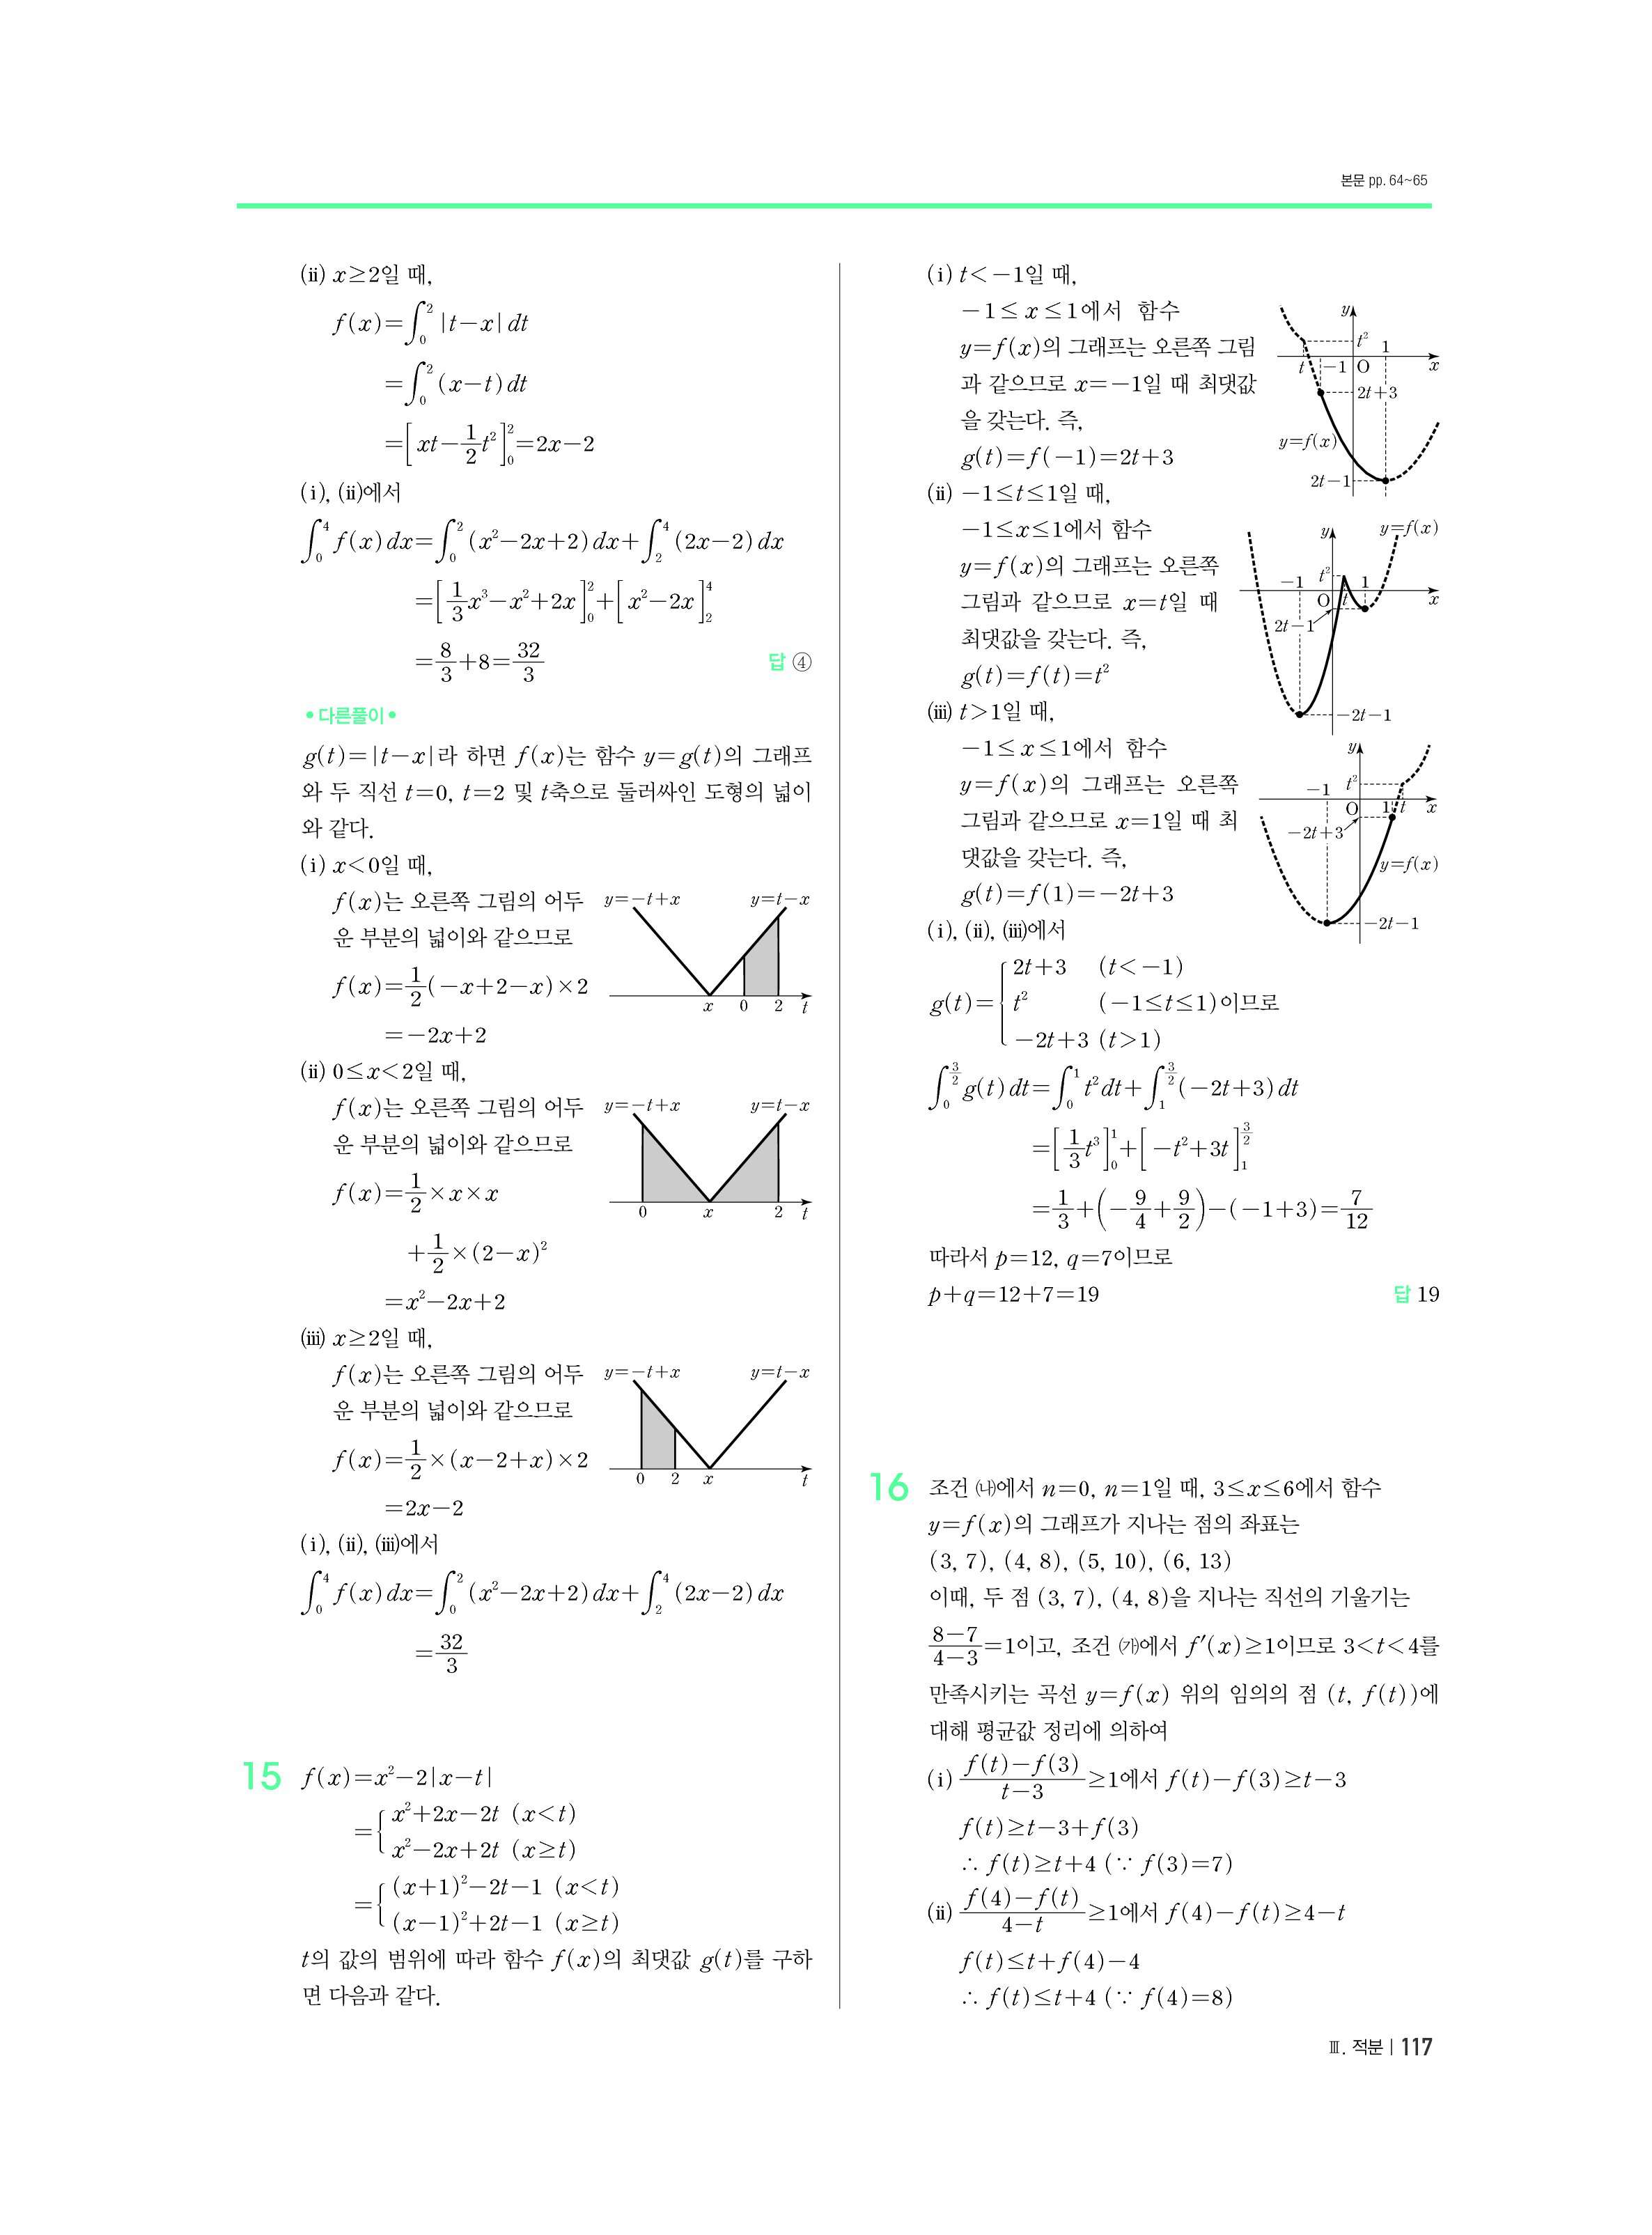 본문 pp. 64~65
(ⅱ) x≥2일 때,
f(x)=∫₀² |t-x| dt
=∫₀² (x-t) dt
=[xt-1/2t²]₀²=2x-2
(ⅰ), (ⅱ)에서
∫₀⁴ f(x) dx=∫₀² (x²-2x+2) dx+∫₂⁴ (2x-2) dx
=[1/3x³-x²+2x]₀²+[x²-2x]₂⁴
=8/3+8=32/3 답 ④
• 다른풀이 •
g(t)=|t-x|라 하면 f(x)는 함수 y=g(t)의 그래프
와 두 직선 t=0, t=2 및 t축으로 둘러싸인 도형의 넓이
와 같다.
(ⅰ) x<0일 때,
f(x)는 오른쪽 그림의 어두
운 부분의 넓이와 같으므로
f(x)=1/2(-x+2-x)×2
=-2x+2
y=-t+x y=t-x
x 0 2 t
(ⅱ) 0≤x<2일 때,
f(x)는 오른쪽 그림의 어두
운 부분의 넓이와 같으므로
f(x)=1/2×x×x
+1/2×(2-x)²
=x²-2x+2
y=-t+x y=t-x
0 x 2 t
(ⅲ) x≥2일 때,
f(x)는 오른쪽 그림의 어두
운 부분의 넓이와 같으므로
f(x)=1/2×(x-2+x)×2
=2x-2
y=-t+x y=t-x
0 2 x t
(ⅰ), (ⅱ), (ⅲ)에서
∫₀⁴ f(x) dx=∫₀² (x²-2x+2) dx+∫₂⁴ (2x-2) dx
=32/3
15 f(x)=x²-2|x-t|
={ x²+2x-2t (x<t)
x²-2x+2t (x≥t)
={ (x+1)²-2t-1 (x<t)
(x-1)²+2t-1 (x≥t)
t의 값의 범위에 따라 함수 f(x)의 최댓값 g(t)를 구하
면 다음과 같다.
(ⅰ) t<-1일 때,
-1≤x≤1에서 함수
y=f(x)의 그래프는 오른쪽 그림
과 같으므로 x=-1일 때 최댓값
을 갖는다. 즉,
g(t)=f(-1)=2t+3
y
t² 1
t -1 O x
2t+3
y=f(x)
2t-1
(ⅱ) -1≤t≤1일 때,
-1≤x≤1에서 함수
y=f(x)의 그래프는 오른쪽
그림과 같으므로 x=t일 때
최댓값을 갖는다. 즉,
g(t)=f(t)=t²
y y=f(x)
-1 t² 1
O t x
2t-1
-2t-1
(ⅲ) t>1일 때,
-1≤x≤1에서 함수
y=f(x)의 그래프는 오른쪽
그림과 같으므로 x=1일 때 최
댓값을 갖는다. 즉,
g(t)=f(1)=-2t+3
y
-1 t²
O 1 t x
-2t+3
y=f(x)
-2t-1
(ⅰ), (ⅱ), (ⅲ)에서
g(t)={ 2t+3 (t<-1)
t² (-1≤t≤1)이므로
-2t+3 (t>1)
∫₀^(3/2) g(t) dt=∫₀¹ t² dt+∫₁^(3/2) (-2t+3) dt
=[1/3t³]₀¹+[-t²+3t]₁^(3/2)
=1/3+(-9/4+9/2)-(-1+3)=7/12
따라서 p=12, q=7이므로
p+q=12+7=19 답 19
16 조건 ㈏에서 n=0, n=1일 때, 3≤x≤6에서 함수
y=f(x)의 그래프가 지나는 점의 좌표는
(3, 7), (4, 8), (5, 10), (6, 13)
이때, 두 점 (3, 7), (4, 8)을 지나는 직선의 기울기는
(8-7)/(4-3)=1이고, 조건 ㈎에서 f′(x)≥1이므로 3<t<4를
만족시키는 곡선 y=f(x) 위의 임의의 점 (t, f(t))에
대해 평균값 정리에 의하여
(ⅰ) (f(t)-f(3))/(t-3)≥1에서 f(t)-f(3)≥t-3
f(t)≥t-3+f(3)
∴ f(t)≥t+4 (∵ f(3)=7)
(ⅱ) (f(4)-f(t))/(4-t)≥1에서 f(4)-f(t)≥4-t
f(t)≤t+f(4)-4
∴ f(t)≤t+4 (∵ f(4)=8)
Ⅲ. 적분 | 117